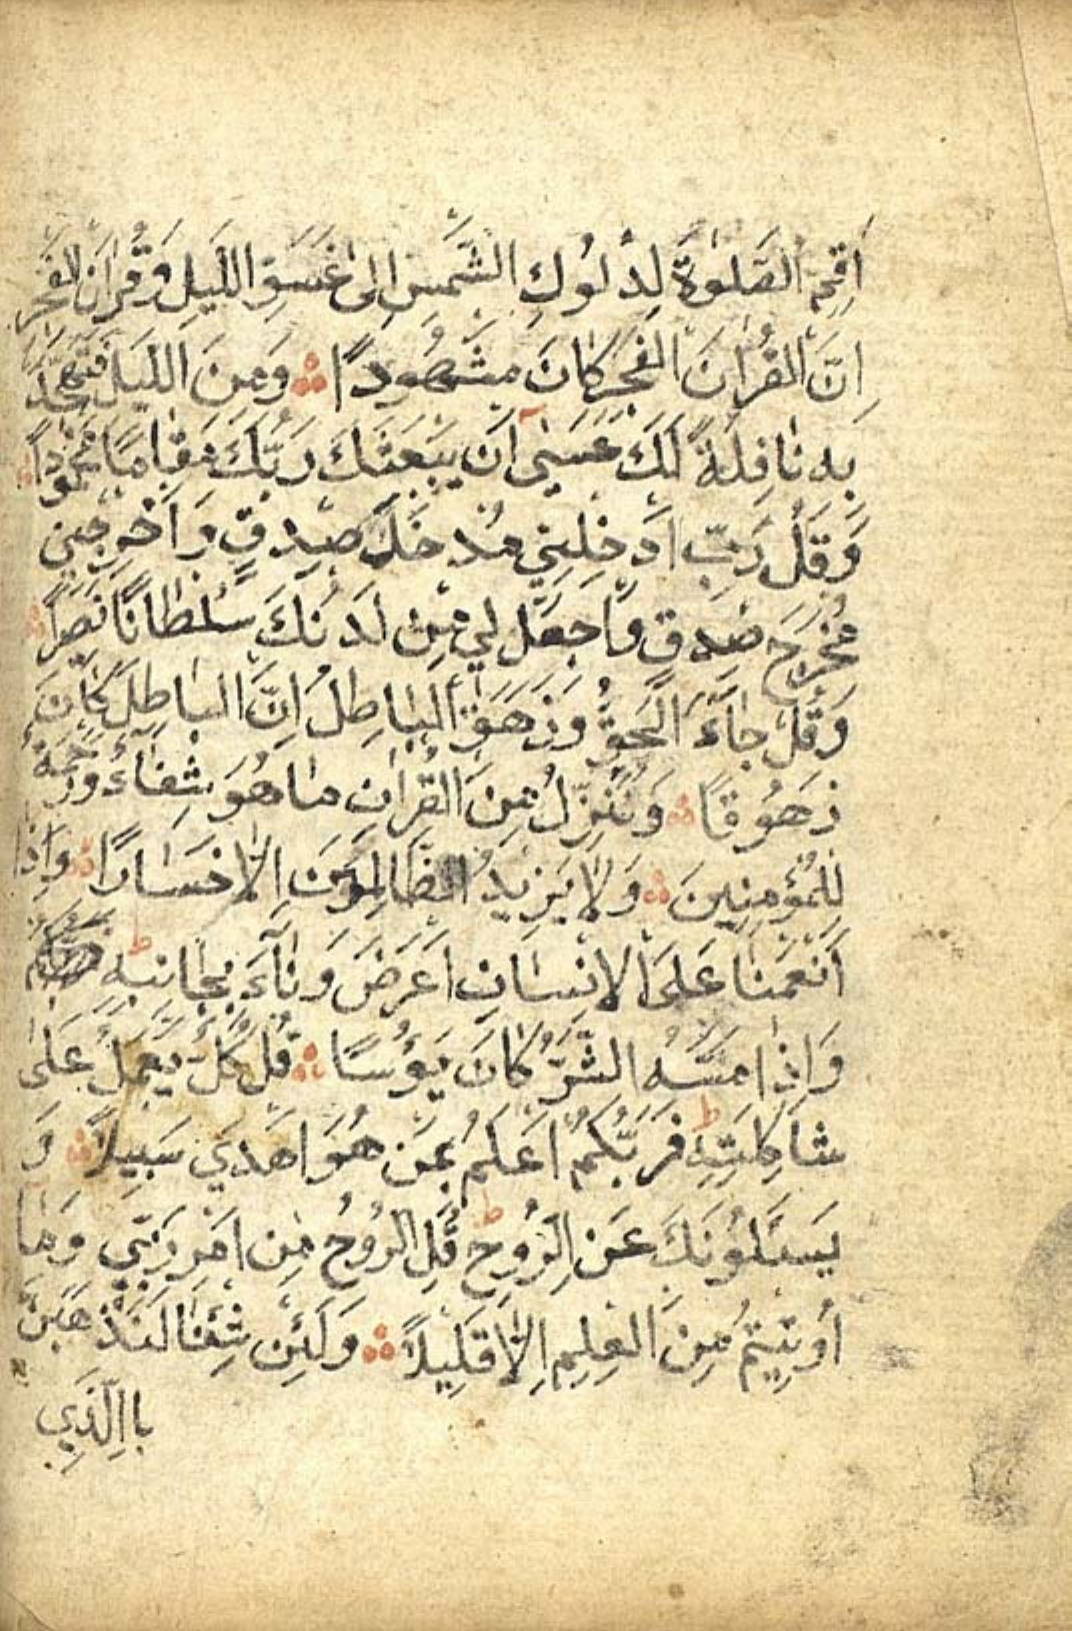 اَقِمِ الصَّلٰوةَ لِدُلُوكِ الشَّمْسِ اِلٰى غَسَقِ اللَّيلِ وَقُرْاٰنَ الفَجْرِ
اِنَّ الْقُرْاٰنَ الفَجْرِ كَانَ مَشْهُودًا ۞ وَمِنَ اللَّيلِ فَتَهَجَّدْ
بِهٖ نَافِلَةً لَكَ عَسٰى اَنْ يَبْعَثَكَ رَبُّكَ مَقَامًا مَحْمُودًا
وَقُلْ رَبِّ اَدْخِلْنِي مُدْخَلَ صِدْقٍ وَاَخْرِجْنِي
مُخْرَجَ صِدْقٍ وَاجْعَلْ لِي مِنْ لَدُنْكَ سُلْطَانًا نَصِيرًا
وَقُلْ جَاءَ الْحَقُّ وَزَهَقَ الْبَاطِلُ اِنَّ الْبَاطِلَ كَانَ
زَهُوقًا ۞ وَنُنَزِّلُ مِنَ الْقُرْاٰنِ مَا هُوَ شِفَاءٌ وَرَحْمَةٌ
لِلْمُؤْمِنِينَ ۞ وَلَا يَزِيدُ الظَّالِمِينَ اِلَّا خَسَارًا ۞ وَاِذَا
اَنْعَمْنَا عَلَى الْاِنْسَانِ اَعْرَضَ وَنَاٰءَ بِجَانِبِهٖ ط
وَاِذَا مَسَّهُ الشَّرُّ كَانَ يَؤُسًا ۞ قُلْ كُلٌّ يَعْمَلُ عَلٰى
شَاكِلَتِهٖ ط فَرَبُّكُمْ اَعْلَمُ بِمَنْ هُوَ اَهْدَي سَبِيلًا ۞ وَ
يَسْئَلُونَكَ عَنِ الرُّوحِ ط قُلِ الرُّوحُ مِنْ اَمْرِ رَبِّي وَمَا
اُوتِيتُمْ مِنَ الْعِلْمِ اِلَّا قَلِيلًا ۞ وَلَئِنْ شِئْنَا لَنَذْهَبَنَّ
بِاالَّذِي